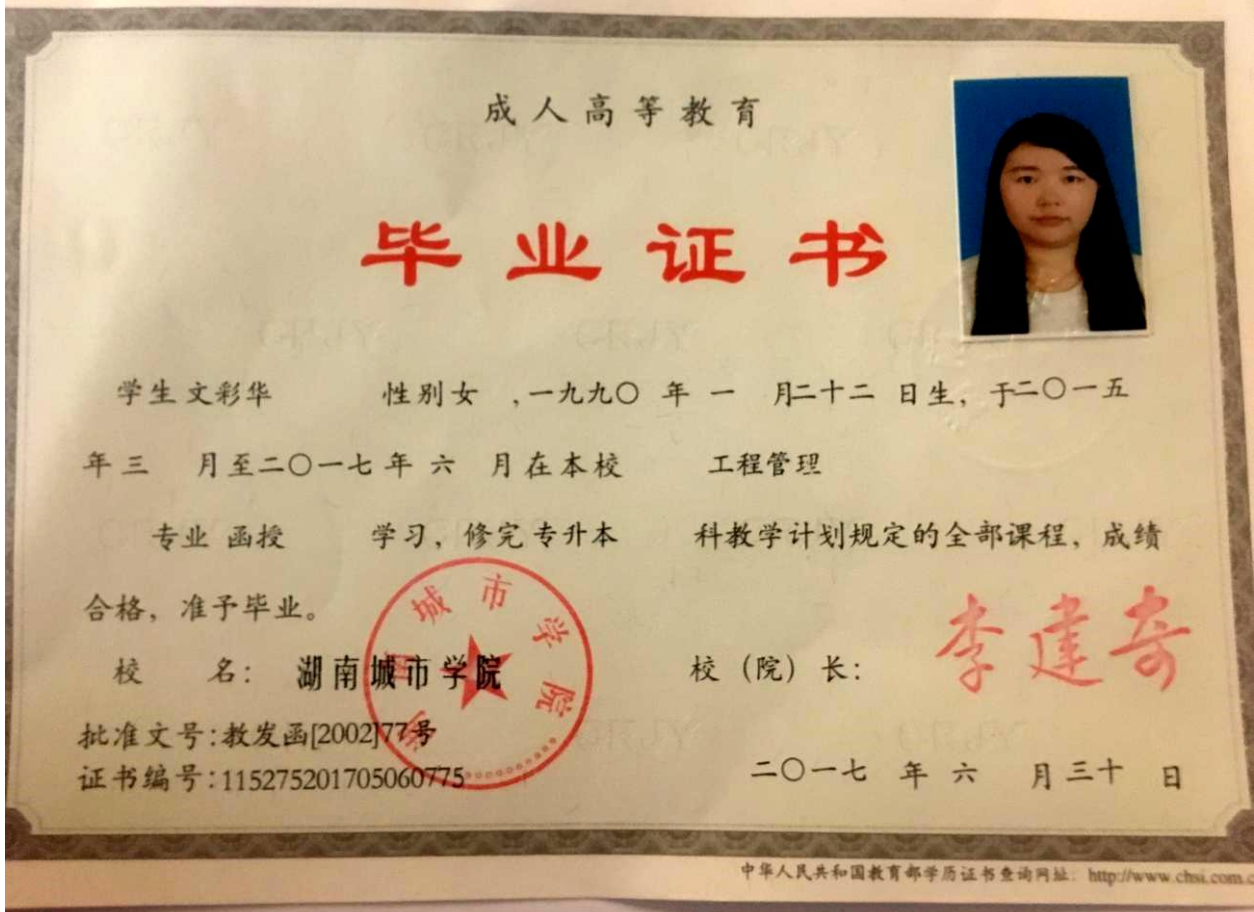 成人高等教育
毕业证书
学生 文彩华 性别 女 , 一九九〇 年 一 月 二十二 日生, 于 二〇一五
年 三 月至 二〇一七 年 六 月在本校 工程管理
专业 函授 学习, 修完 专升本 科教学计划规定的全部课程, 成绩
合格, 准予毕业。
校 名: 湖南城市学院 校（院）长: 李建奇
批准文号:教发函[2002]77号
证书编号:115275201705060775
二〇一七 年 六 月 三十 日
湖南城市学院
中华人民共和国教育部学历证书查询网址: http://www.chsi.com.c